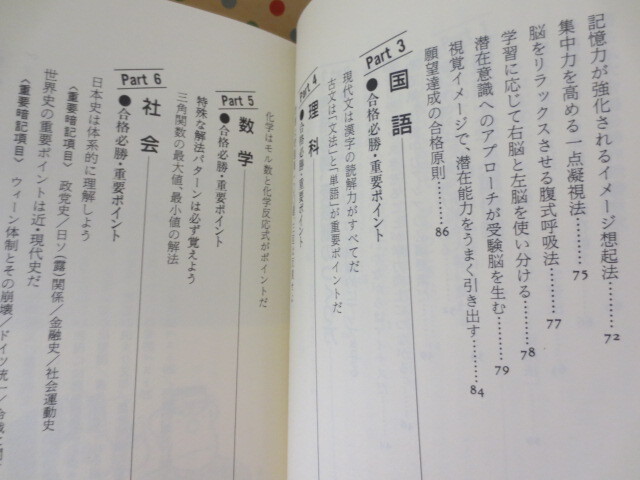 記憶力が強化されるイメージ想起法………72
集中力を高める一点凝視法………75
脳をリラックスさせる腹式呼吸法………77
学習に応じて右脳と左脳を使い分ける………78
潜在意識へのアプローチが受験脳を生む………79
視覚イメージで、潜在能力をうまく引き出す………84
願望達成の合格原則………86
Part 3 国語
●合格必勝・重要ポイント
現代文は漢字の読解力がすべてだ
古文は「文法」と「単語」が重要ポイントだ
Part 4 理科
●合格必勝・重要ポイント
化学はモル数と化学反応式がポイントだ
Part 5 数学
●合格必勝・重要ポイント
特殊な解法パターンは必ず覚えよう
三角関数の最大値、最小値の解法
Part 6 社会
●合格必勝・重要ポイント
日本史は体系的に理解しよう
〈重要暗記項目〉 政党史／日ソ(露)関係／金融史／社会運動史
世界史の重要ポイントは近・現代史だ
〈重要暗記項目〉 ウィーン体制とその崩壊／ドイツ統一／